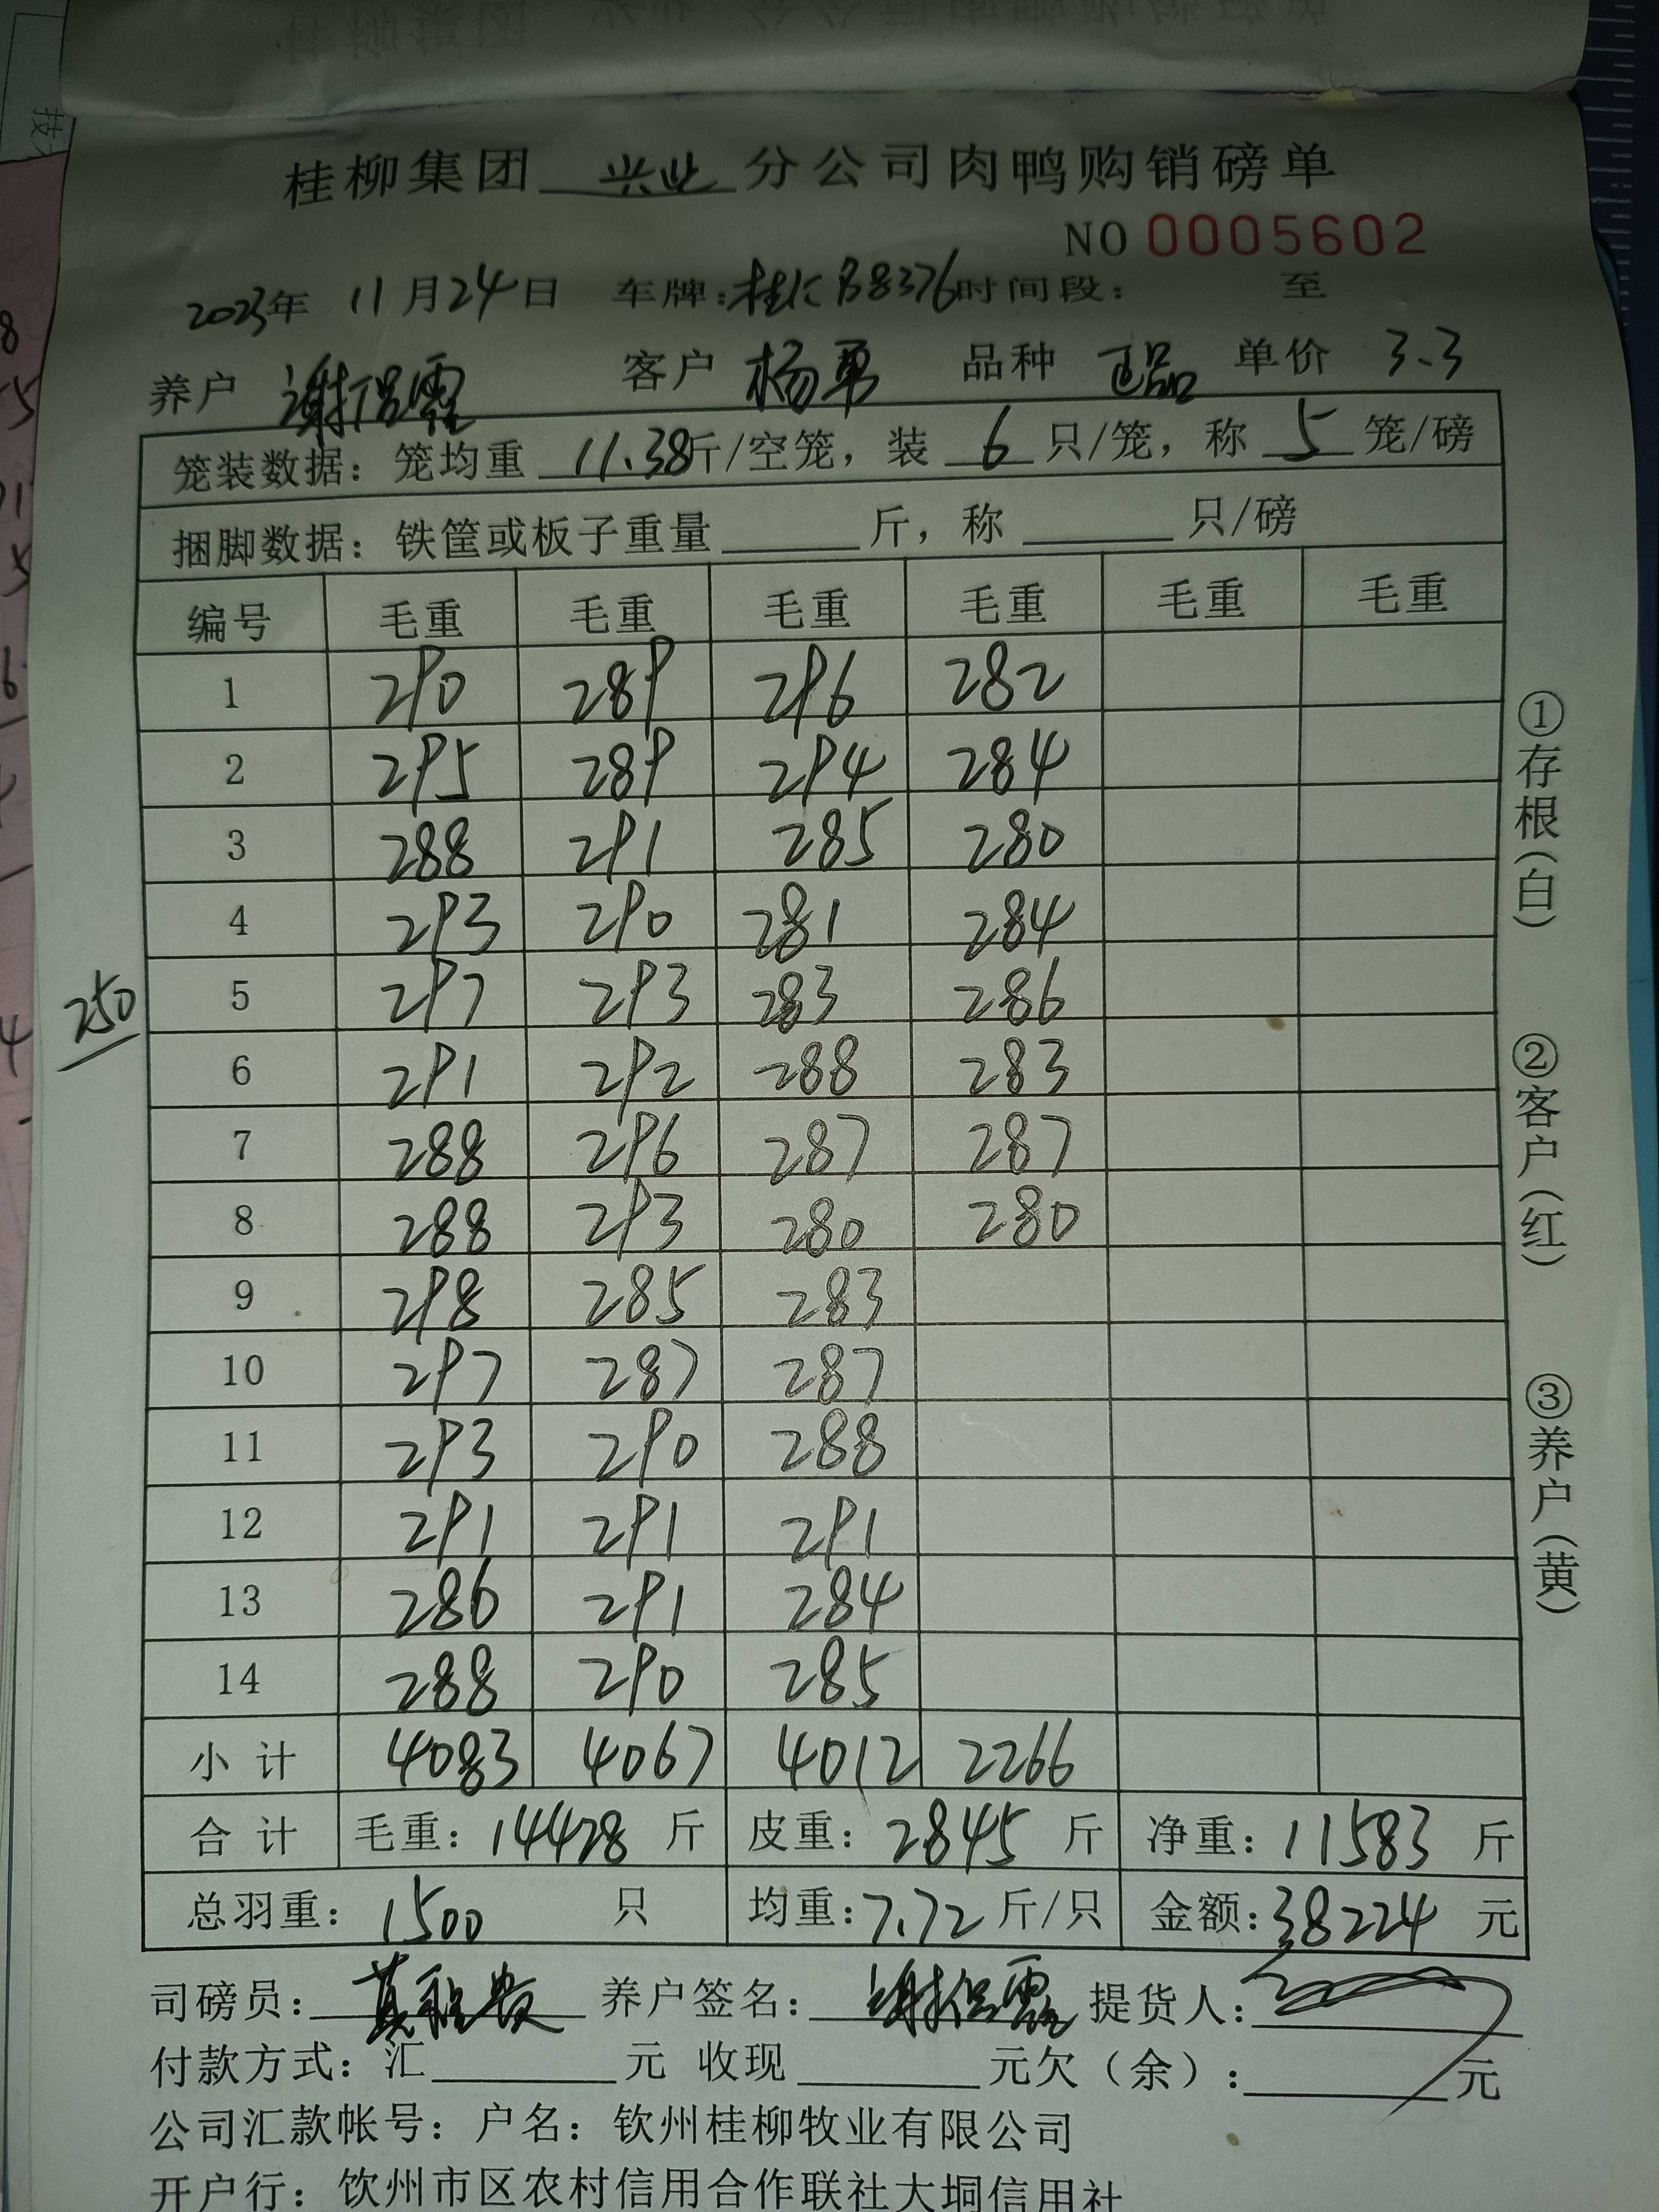 桂柳集团 兴业 分公司肉鸭购销磅单
NO 0005602
2023年 11月24日 车牌:桂K B8376 时间段: 至
养户 谢 霞 客户 杨勇 品种 正品 单价 3.3
笼装数据: 笼均重 11.38斤/空笼, 装 6 只/笼, 称 5 笼/磅
捆脚数据: 铁筐或板子重量 斤, 称 只/磅
编号 毛重 毛重 毛重 毛重 毛重 毛重
1 290 289 296 282
2 295 289 294 284
3 288 291 285 280
4 293 290 281 284
250
5 297 293 283 286
6 291 292 288 283
7 288 296 287 287
8 288 293 280 280
9 298 285 283
10 297 287 287
11 293 290 288
12 291 291 291
13 286 291 284
14 288 290 285
小计 4083 4067 4012 2266
合计 毛重: 14428 斤 皮重: 2845 斤 净重: 11583 斤
总羽重: 1500 只 均重: 7.72 斤/只 金额: 38224 元
司磅员: 养户签名: 谢 霞 提货人:
付款方式: 汇 元 收现 元欠(余): 元
公司汇款帐号: 户名: 钦州桂柳牧业有限公司
开户行: 钦州市区农村信用合作联社大垌信用社
①存根(白)
②客户(红)
③养户(黄)